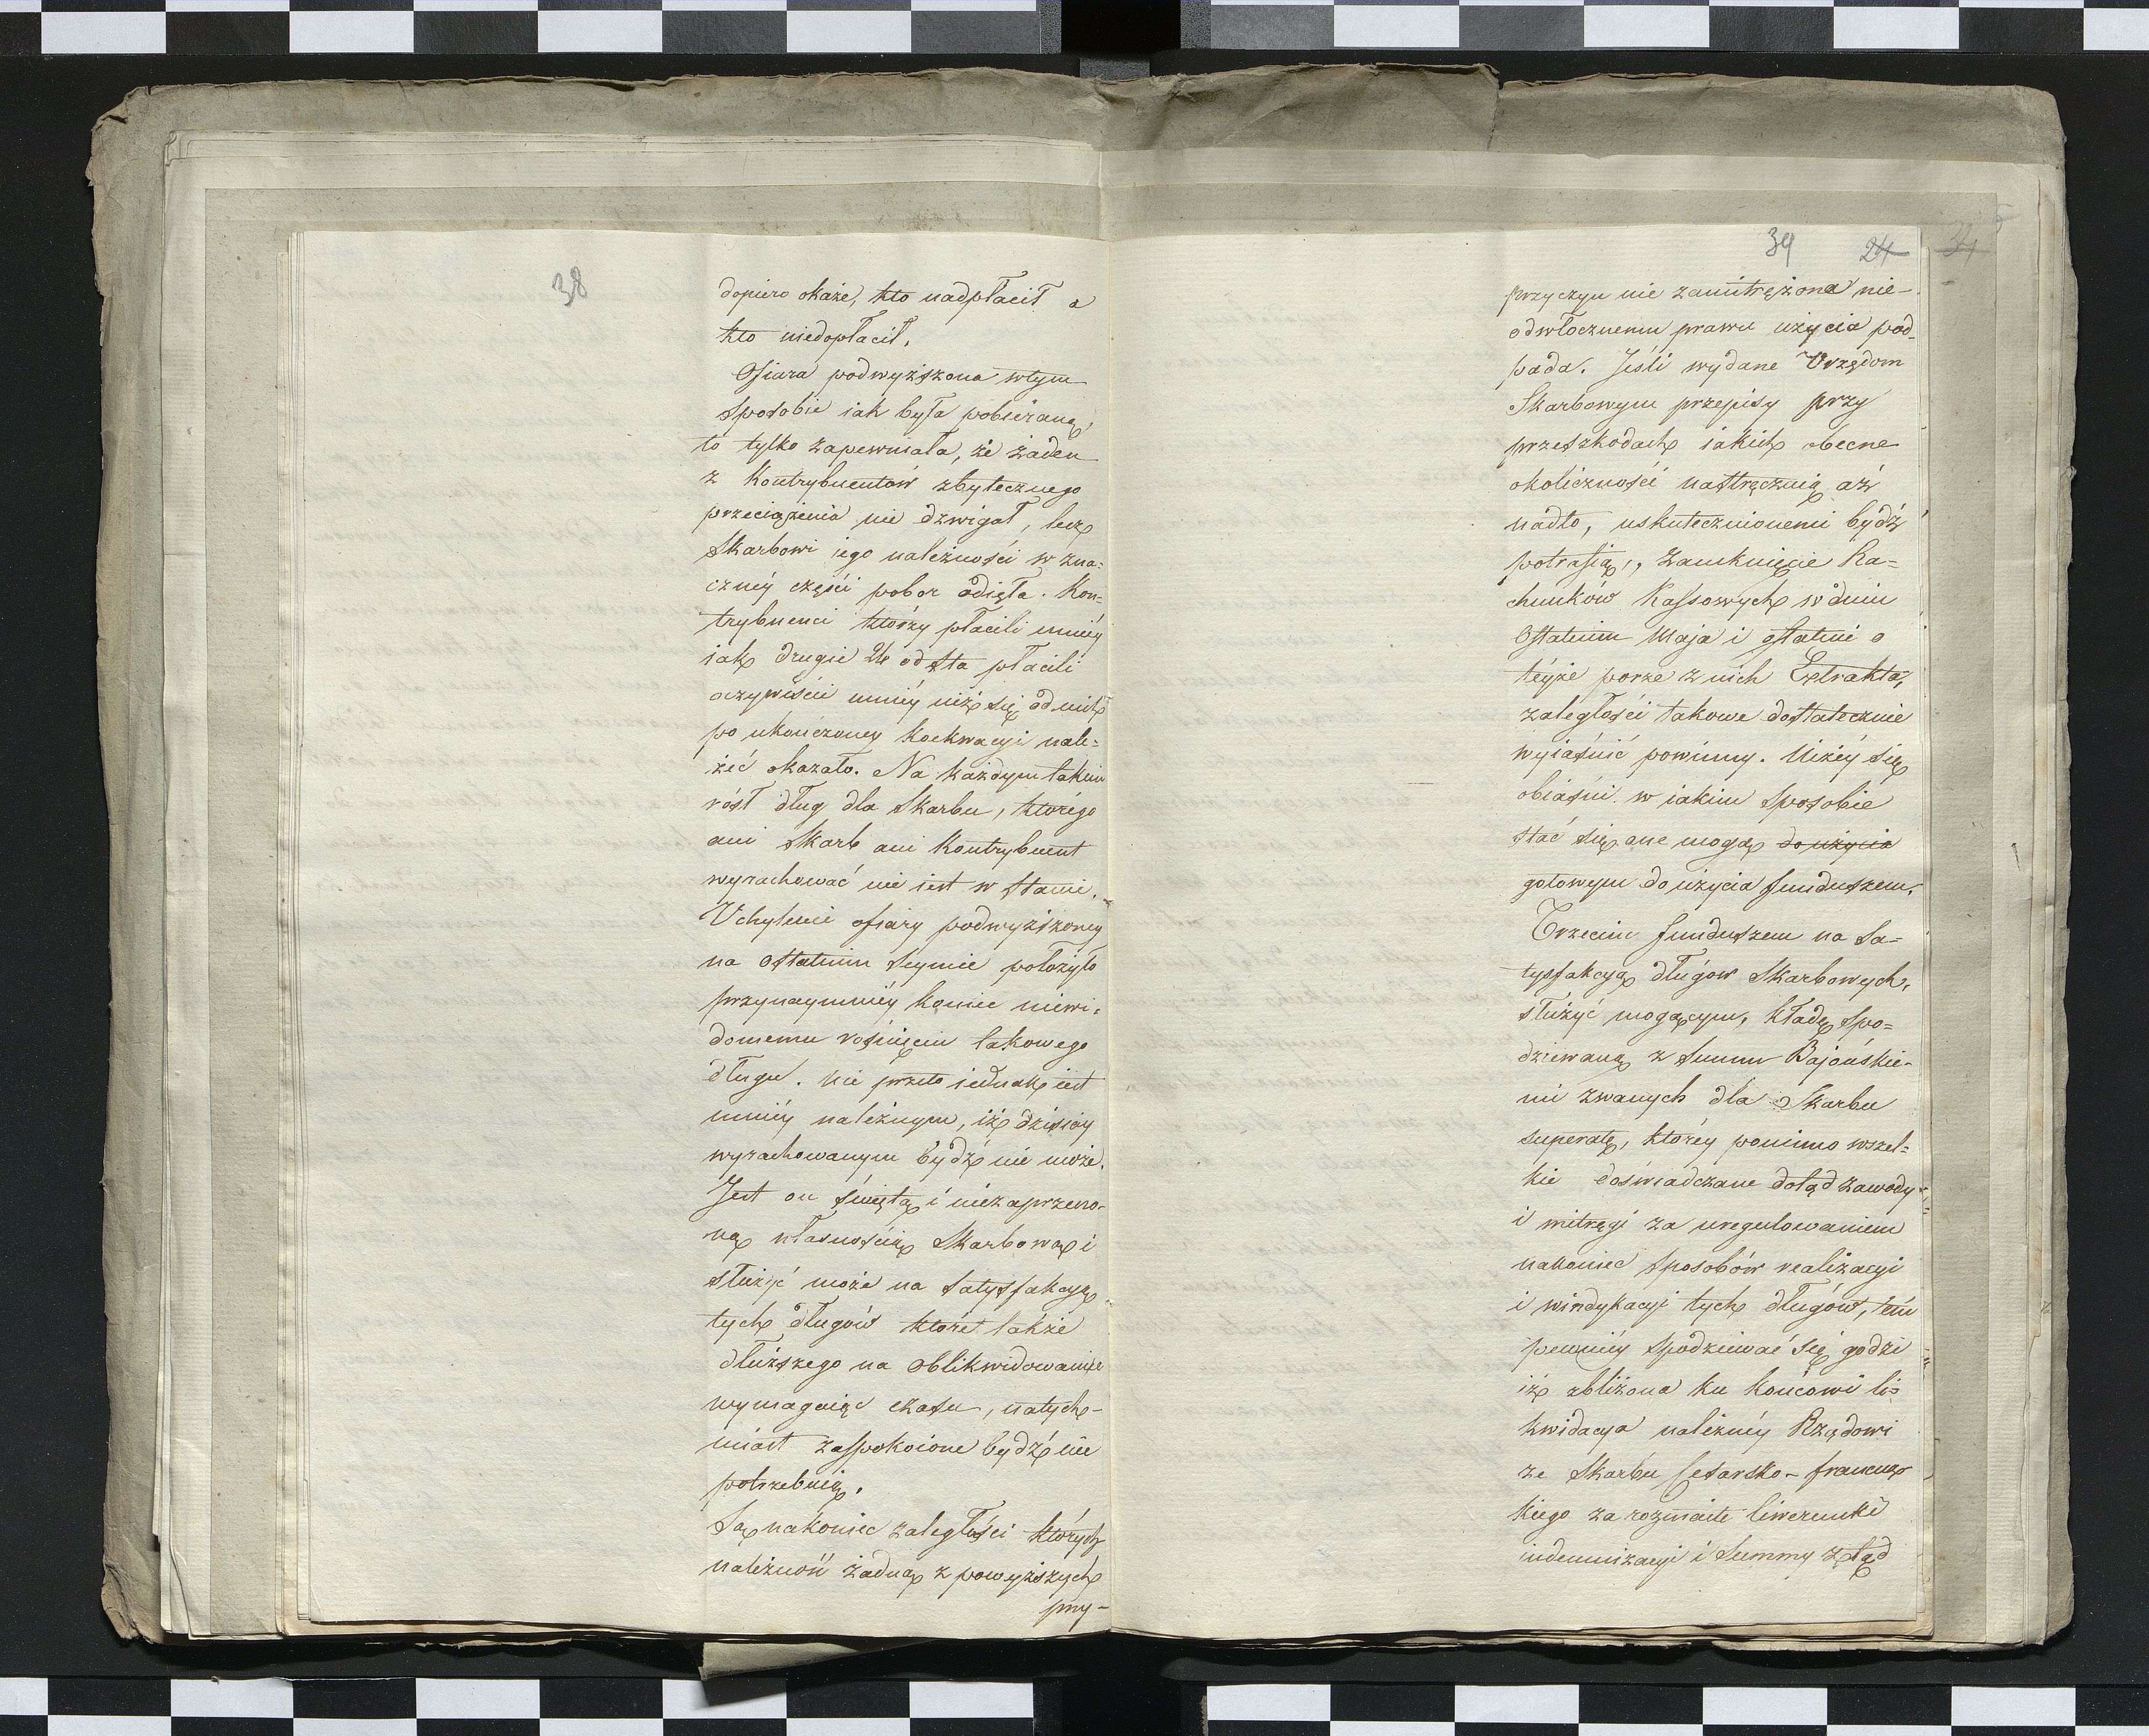 38
dopiero okaże, kto nadpłacił a
kto niedopłacił.
Ofiara podwyższona wtym
sposobie iak była pobieraną,
to tylko zapewniała, że żaden
z Kontrybuentów zbytecznego
przeciążenia nie dzwigał, lecz
Skarbowi iego należności w zna=
cznéy części pobor odięła. Kon=
trybuenci którzy płacili mniéy
iak drugie 24 od sta płacili
oczywiście mniéy niż się od nich
po ukończoney Koekwacyi nale=
żeć okazało. Na każdym takim
rósł dług dla Skarbu, którégo
ani Skarb ani Kontrybuent
wyrachować nie iest w stanie.
Uchylenie ofiary podwyższoney
na ostatnim Seymie położyło
przynaymniéy koniec niewi=
domemu rośnięciu takowego
długu. Nie przeto iednak iest
mniéy należnym, iż dzisiay
wyrachowanym bydź nie może.
Jest on świętą i niezaprzeczo=
ną własnością Skarbową i
służyć może na satysfakcyą
tych długów które także
dłuższego na oblikwidowanie
wymagaiąc czasu, natych=
miast zaspokoione bydź nie
potrzebuią.
Są nakoniec zaległości których
należność żadną z powyższych
przy-
39 24 34
przyczyn nie zamitrężona nie-
odwłocznemu prawu użycia pod-
pada. Jeśli wydane Urzędom
Skarbowym przepisy przy
przeszkodach iakich obecne
okoliczności nastręczaią aż
nadto, uskutecznionemi bydź
potrafią, zamknięcie Ra=
chunków Kassowych w dniu
ostatnim Maja i ostatnie o
téyże porze z nich Extrakta,
zaległości takowe dostatecznie
wyiaśnić powinny. Niżéy się
obiaśni w iakim sposobie
stać się one mogą do użycia
gotowym do użycia funduszem.
Trzecim funduszem na sa=
tysfakcyą długów Skarbowych,
służyć mogącym, kładę spo=
dziewaną z Summ Bajońskie-
mi zwanych dla Skarbu
superatę, któréy pomimo wszel=
kie doświadczane dotąd zawody
i mitręgi za uregulowaniem
nakoniec sposobów realizacyi
i windykacyi tych długów, tém
pewniéy spodziewać się godzi
iż zbliżona ku końcowi li=
kwidacya należnéy Rządowi
ze Skarbu Cesarsko-francuz
kiego za rozmaite liwerunki
indemnizacyi i Summy ztąd